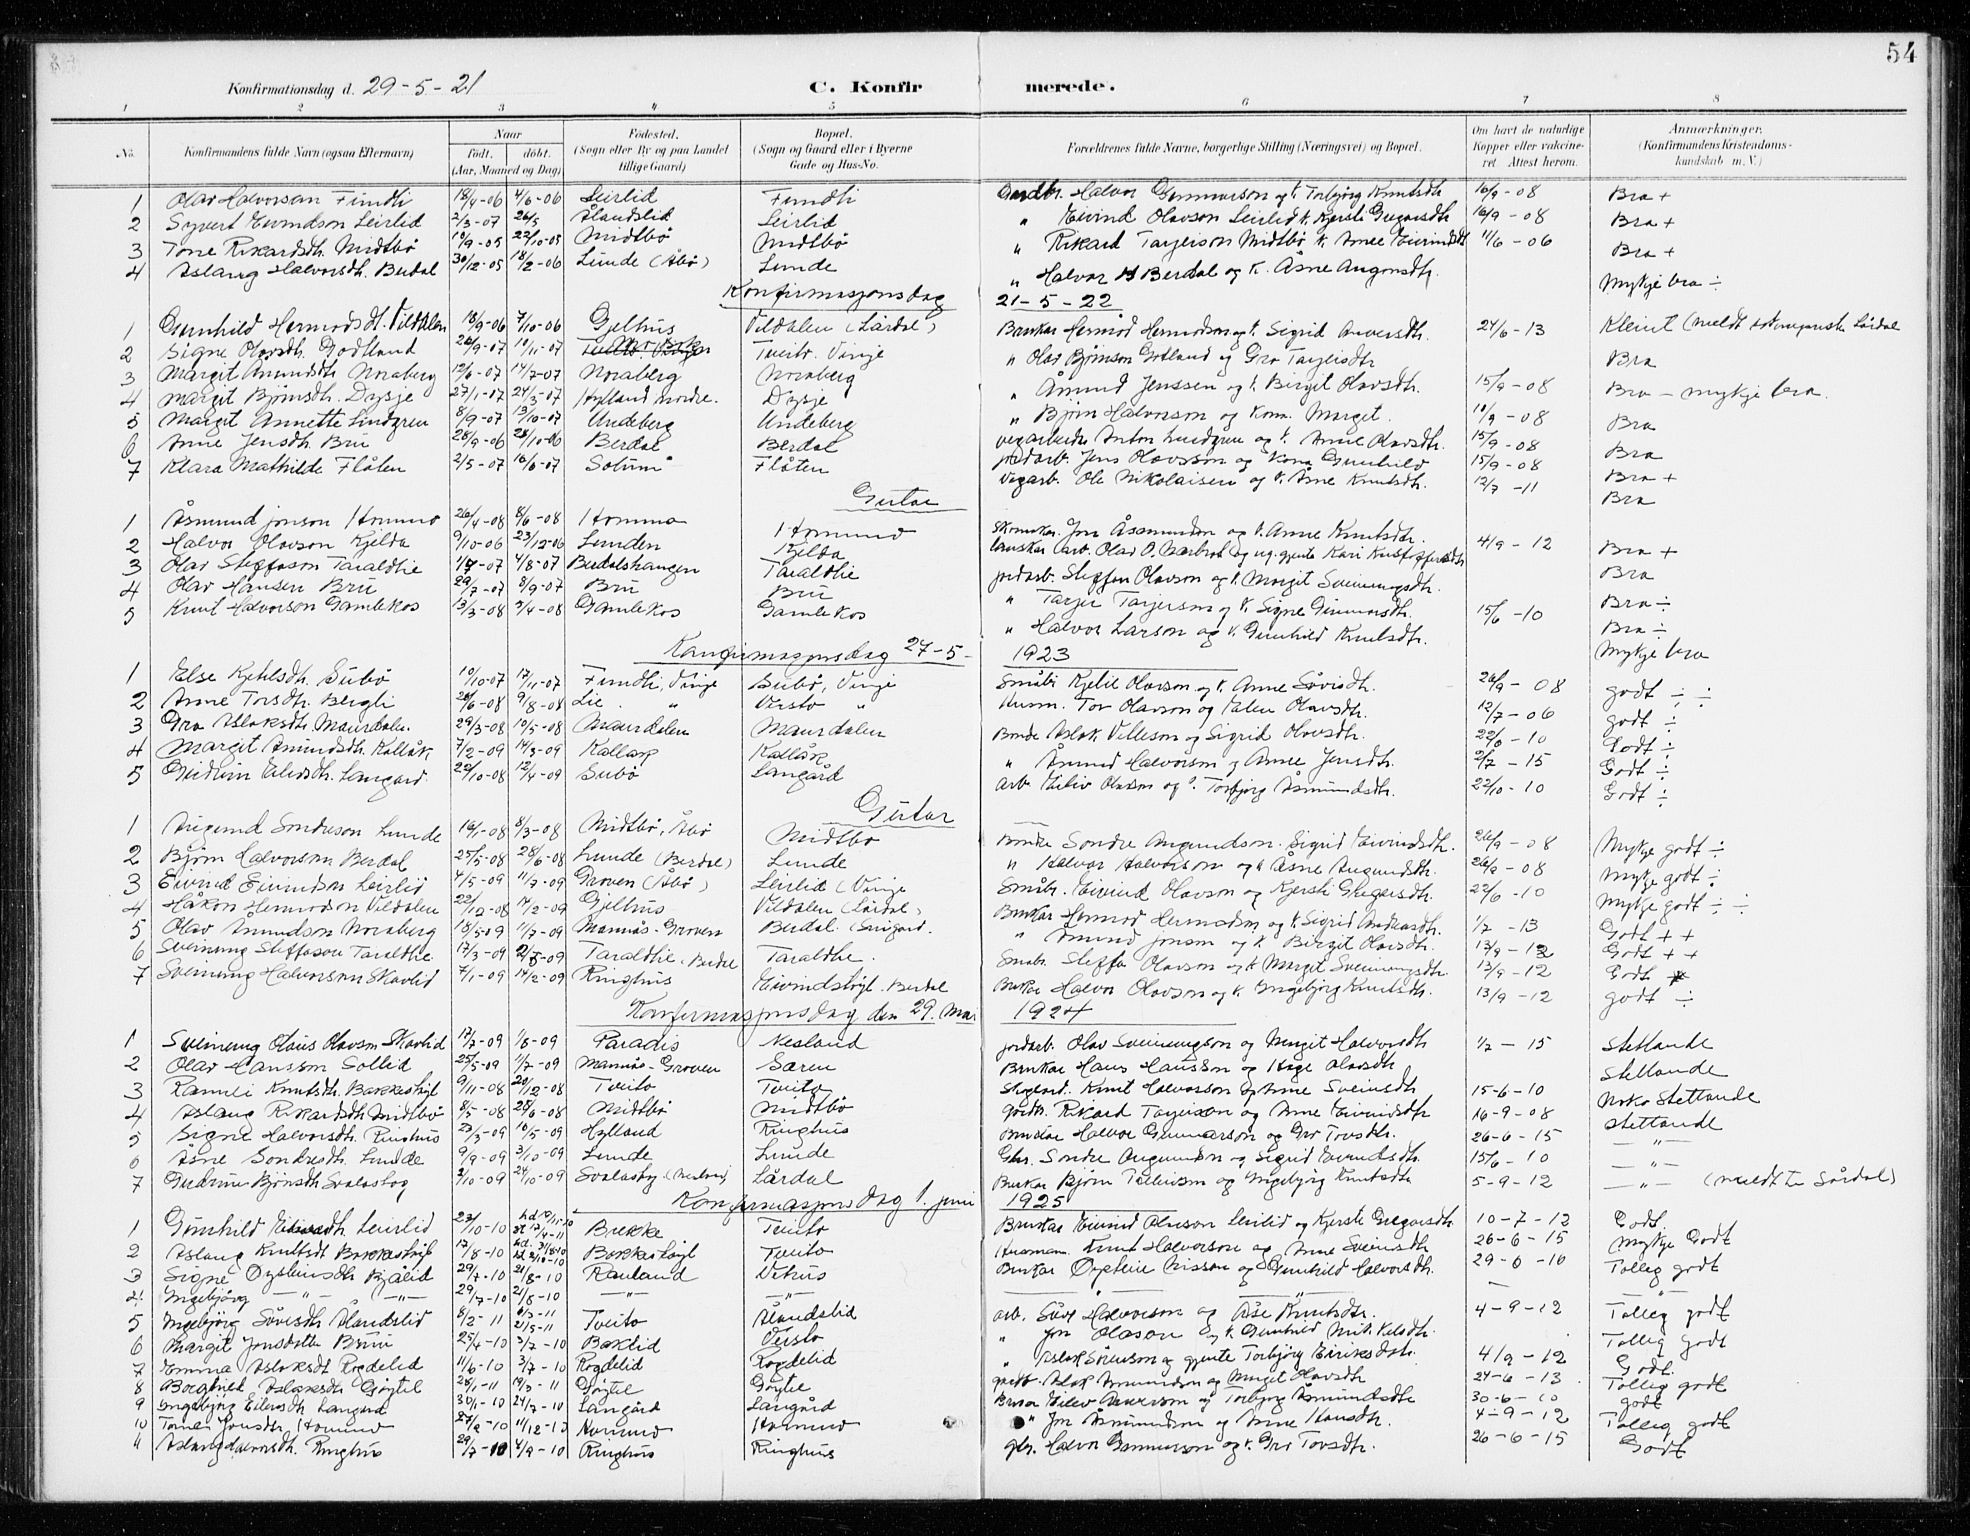 54
Konfirmationsdag d. 29-5-21 C. Konfir merede.
1 2 3 4 5 6 7 8
No. Konfirmandens fulde Navn (ogsaa Efternavn) Naar født. døbt. (Aar, Maaned og Dag) Fødested. (Sogn eller By og paa Landet tillige Gaard) Bopæl. (Sogn og Gaard eller i Byerne Gade og Hus-No. Forældrenes fulde Navne, borgerlige Stilling (Næringsvei) og Bopæl. Om havt de naturlige Kopper eller vakcineret. Attest herom. Anmærkninger. (Konfirmandens Kristendomskundskab m. V.)
1 Olav Halvorson Fundli 18/4-06 4/6-06 Leirlid Fundli Halvor Gunnarson og k. Torbjørg Knutsdtr. 16/9-08 Bra +
2 Syvert Eivindson Leirlid 2/3-07 26/5 Ålandslid Leirlid " Eivind Olavson Leirlid k. Kjersti Gregarsdtr 16/9-08 Bra +
3 Tone Rikardsdtr. Midtbö 10/9-05 22/10-05 Midtbö Midtbö " Rikard Tarjeison Midtbö k. Anne Eivindsdtr 11/6-06 Bra +
4 Aslaug Halvorsdtr. Berdal 30/12-05 18/2-06 Lunde (Åbö) Lunde " Halvor H Berdal og k. Åsne Augonsdtr. Mykje bra ÷
Konfirmasjonsdag 21-5-22
1 Gunhild Hermodsdt. Vildalen 18/9-06 7/10-06 Gjelhus Vildalen (Lårdal) Brukar Hermod Hermodson og k. Sigrid 24/6-13 Kleint (meldt Lårdal
2 Signe Olavsdtr. Godtland 26/9-07 10/11-07 Tveito. Vinje " Olav Bjönson Gotland og Gro Tarjeisdtr Bra
3 Margit Åmundsdtr Noraberg 12/6-07 14/7-07 Noraberg Noraberg " Åmund Jenssen og k. Birgit Olavsdtr. 15/9-08 Bra - mykje bra.
4 Margit Bjönsdtr. Dysje 27/1-07 24/3-07 Hylland nordre. Dysje " Björn Halvorson og Kona Margit. 10/9-08 Bra
5 Margit Annette Lindgren 8/9-07 13/10-07 Undeberg Undeberg vegarbeider Anton Lindgren og k. Anne Olavsdtr. 15/9-08 Bra
6 Anne Jensdtr. Bru 28/9-06 28/10-06 Berdal Berdal jordarb. Jens Olavsson og Kona Gunhild 15/9-08 Bra +
7 Klara Mathilde Flåten 2/5-07 16/6-07 Solum Flåten Vegarb. Ole Nikolaisen og k. Åsne Knutsdtr. 12/7-11 Bra
Gutar
1 Åsmund Jonson Hommo 26/4-08 8/6-08 Homma Hommo Jon Åsmundson og k. Anne Knutsdtr. 4/9-12 Bra +
2 Halvor Olavson Kjelda 9/10-06 23/12-06 Lunden Kjelda arb. Olav O. og ug. gjente Kari Kristoffersdtr Bra
3 Olav Steffason Taraldlie 1/7-07 4/8-07 Berdalshaugen Taraldlie jordarb. Steffen Olavson og k. Margit Sveinungsdtr. Bra ÷
4 Olav Hansen Bru 29/7-07 8/9-07 Bru Bru " Tarjei Tarjeison og k. Signe Gunnarsdtr. 15/6-10 Bra ÷
5 Knut Halvorson Gamlekos 13/3-08 3/4-08 Gamlekos Gamlekos " Halvor Larson og k. Gunhild Knutsdtr. Mykje bra
Konfirmasjonsdag 27-5- 1923
1 Else Kjetilsdtr. Subö 10/10-07 17/11-07 Fundli, Vinje Subö, Vinje Småbr Kjetil Olavson og k. Anne Sövisdtr. 26/9-08 godt ÷ ÷
2 Anne Torsdtr. Bergli 20/6-08 9/8-08 Lie " Versto " Husm. Tor Olavson og Olavsdtr. 12/7-06 godt ÷
3 Gro Aslaksdtr. Maurdalen. 29/3-08 10/5-08 Maurdalen Maurdalen Bonde Aslak Villeson og Sigrid Olavsdtr. 22/6-10 Godt ÷
4 Margit Åmundsdtr. Kallåk 7/2-09 14/3-09 Kallåk Kallåk " Åmund Halvorson og Anne Jensdtr. 2/7-15 Godt ÷
5 Gudrun Eilivsdtr. Langard. 22/10-08 12/4-09 Subö Langård arb. Eiliv Olavson og k. Torbjörg Åsmundsdtr. 22/10-10 Godt ÷
Gutar
1 Augund Sondreson Lunde 16/1-08 8/3-08 Midtbö, Åbö Midtbö Bonde Sondre Augundson. Sigrid Eivindsdtr. 26/9-08 Mykje godt ÷
2 Björn Halvorson Berdal 25/5-08 28/6-08 Lunde (Berdal) Lunde " Halvor Halvorson og k Åsne Augundsdtr. 26/9-08 Mykje godt ÷
3 Eivind Eivindson Leirlid 4/5-09 11/7-09 Groven (Åbö) Leirlid (Vinje Småbr. Eivind Olavson og Kjersti Gregarsdtr. 22/6-10 Mykje godt ÷ ÷
4 Håkon Hermodson Vildalen 22/12-08 14/2-09 Gjelhus Vildalen (Lårdal) Brukar Hermod Hermodson og k. Sigrid Andreasdtr. 1/7-13 Godt + +
5 Olav Åmundson Noraberg 18/5-09 11/7-09 Mannås-Groven Berdal " Åmund Jonson og k. Birgit Olavsdtr. 13/9-12 Godt + +
6 Sveinung Steffason Taraldlie 17/3-09 2/5-09 Taraldlie. Berdal Taraldlie. Småbr. Steffa Olavson og k Margit Sveinungsdtr. 13/9-12 Godt
7 Sveinung Halvorson Skavlid 7/1-09 14/2-09 Ringhus Eivindstöyl. Berdal Brukar Halvor Olavson og k. Ingebjörg Knutsdtr. 13/9-12 godt ÷
Konfirmasjonsdag den 29. Mai 1924
1 Sveinung Olaus Olavson Skavlid 17/7-09 1/8-09 Paradis Nesland jordarb. Olav Sveinungson og Margit Halvorsdtr 1/7-15 Stettande
2 Olav Hansson Sollid 25/5-09 11/7-09 Mannås-Groven Saren Brukar Hans Hansson og Hæge Olavsdtr Stettande
3 Ramlei Knutsdtr. Bakkestöyl 9/11-08 20/12-08 Tveito Tveito Knut Halvorsson og Anne Sveinsdtr 15-6-10 Noko Stettande
4 Aslaug Rikardsdtr Midtbö 8/5-08 28/6-08 Midtbö Midtbö Gardbr. Rikard Tarjeison og Anne Eivindsdtr 16-9-08 Stettande
5 Signe Halvorsdtr. Ringhus 23/3-09 16/5-09 Hylland Ringhus Brukar Halvor Gunnarson og Gro Torsdtr. 26-6-15 — " —
6 Åsne Sondresdtr. Lunde 9/9-09 3/10-09 Lunde Lunde Gbr. Sondre Augundson og Sigrid Eivindsdtr. 15/6-10 — " —
7 Gudrun Björnsdtr Svalastog 2/10-09 24/10-09 Svalastog Lårdal Brukar Björn Talleivson og Ingebjörg Knutsdtr 5-9-12 — " — (meldt te Lårdal)
Konfirmasjonsdag 1. juni 1925
1 Gunhild Eivindsdtr Leirlid 23/10-10 Brekke Tveito Brukar Eivind Olavson Leirlid og Kjersti Gregarsdtr 10-7-12 Godt.
2 Aslaug Knutsdt Bakkestöyl 17/8-10 Bakkestöyl Tveito Husman. Knut Halvorson og Anne Sveinsdtr 26-6-15 Mykje Godt
3 Signe Öysteinsdtr Bjålid 29/7-10 21/8-10 Rauland Vehus Brukar Öystein Nisson og Gunhild Halvorsdtr. 29-6-10 Tolleg godt
4 Ingebjörg — " — — " — 29/7-10 21/8-10 — " — — " — — " —
5 Ingebjörg Sövisdtr Ålandslid 8/2-11 21/5-11 Tveito Ålandslid arb. Söve Halvorson og Åse Knutsdtr. 4-9-12 Tolleg godt
6 Margit Jonsdotter Bruu 25/4-10 3/7-10 Baklid Versto " Jon Olason og k. Gunhild Mikkelsdtr. Tolleg Godt
7 Emma Aslaksdt Rogdelid 11/6-10 3/7-10 Rogdelid Rogdelid " Aslak Sörenson og gjente Torbjörg Eiriksdotr. 4/9-12 Godt.
8 Borghild Aslaksdtr Göytil 28/1-11 19/3-11 Göytil Göytil gardbr. Aslak Åsmundson og Margit Olavsdtr 24-6-13 Tolleg godt
9 Ingebjörg Eilivsdtr Langard 30/1-10 24/7-10 Langård Langård Eiliv og Torbjörg Åsmundsdtr 30-6-10 godt
10 Tone Jonsdtr. Hommo 27/2-10 11/12-13 Hommo Hommo " Jon Åsmundson og Anne Hansdtr. 4-9-12 Tolleg godt
11 Aslaug Halvorsdtr. Ringhus 29/7-10 4/9-10 Ringhus Ringhus gbr. Halvor Gunnarson og k. Gro Torsdtr. 26-6-15 Godt